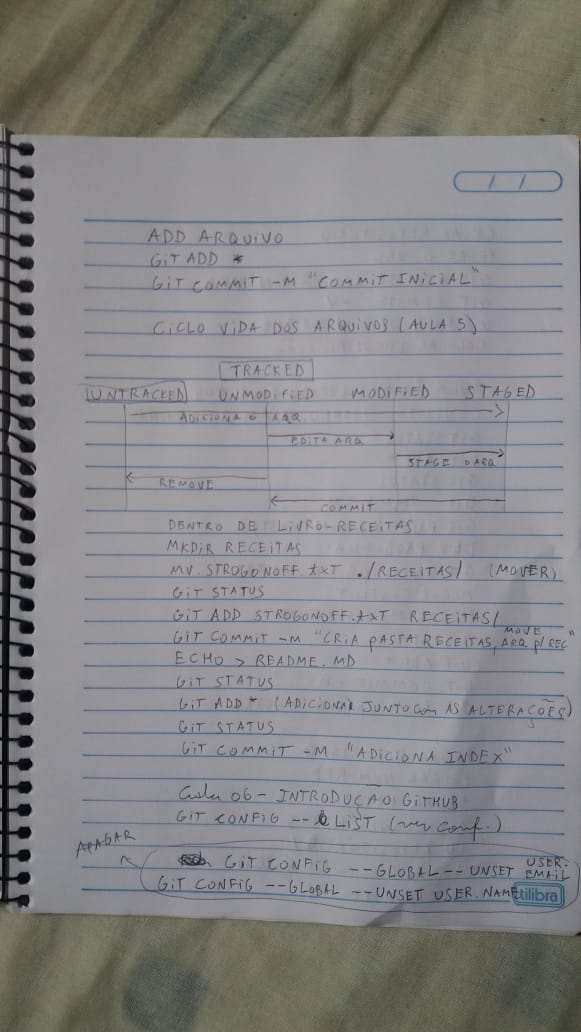 / /
ADD ARQUIVO
GIT ADD *
GIT COMMIT -M "COMMIT INICIAL"
CICLO VIDA DOS ARQUIVOS (AULA 5)
TRACKED
UNTRACKED UNMODIFIED MODIFIED STAGED
ADICIONA O ARQ
EDITA ARQ
STAGE O ARQ
REMOVE
COMMIT
DENTRO DE LIVRO-RECEITAS
MKDIR RECEITAS
MV STROGONOFF.txt ./RECEITAS/ (MOVER)
GIT STATUS
GIT ADD STROGONOFF.txt RECEITAS/
GIT COMMIT -M "CRIA PASTA RECEITAS, MOVE ARQ P/ REC"
ECHO > README.MD
GIT STATUS
GIT ADD * (ADICIONA JUNTO COM AS ALTERAÇÕES)
GIT STATUS
GIT COMMIT -M "ADICIONA INDEX"
Aula 06 - INTRODUÇAO GITHUB
GIT CONFIG --LIST (ver conf.)
APAGAR
GIT CONFIG --GLOBAL --UNSET USER.EMAIL
GIT CONFIG --GLOBAL --UNSET USER.NAME
tilibra